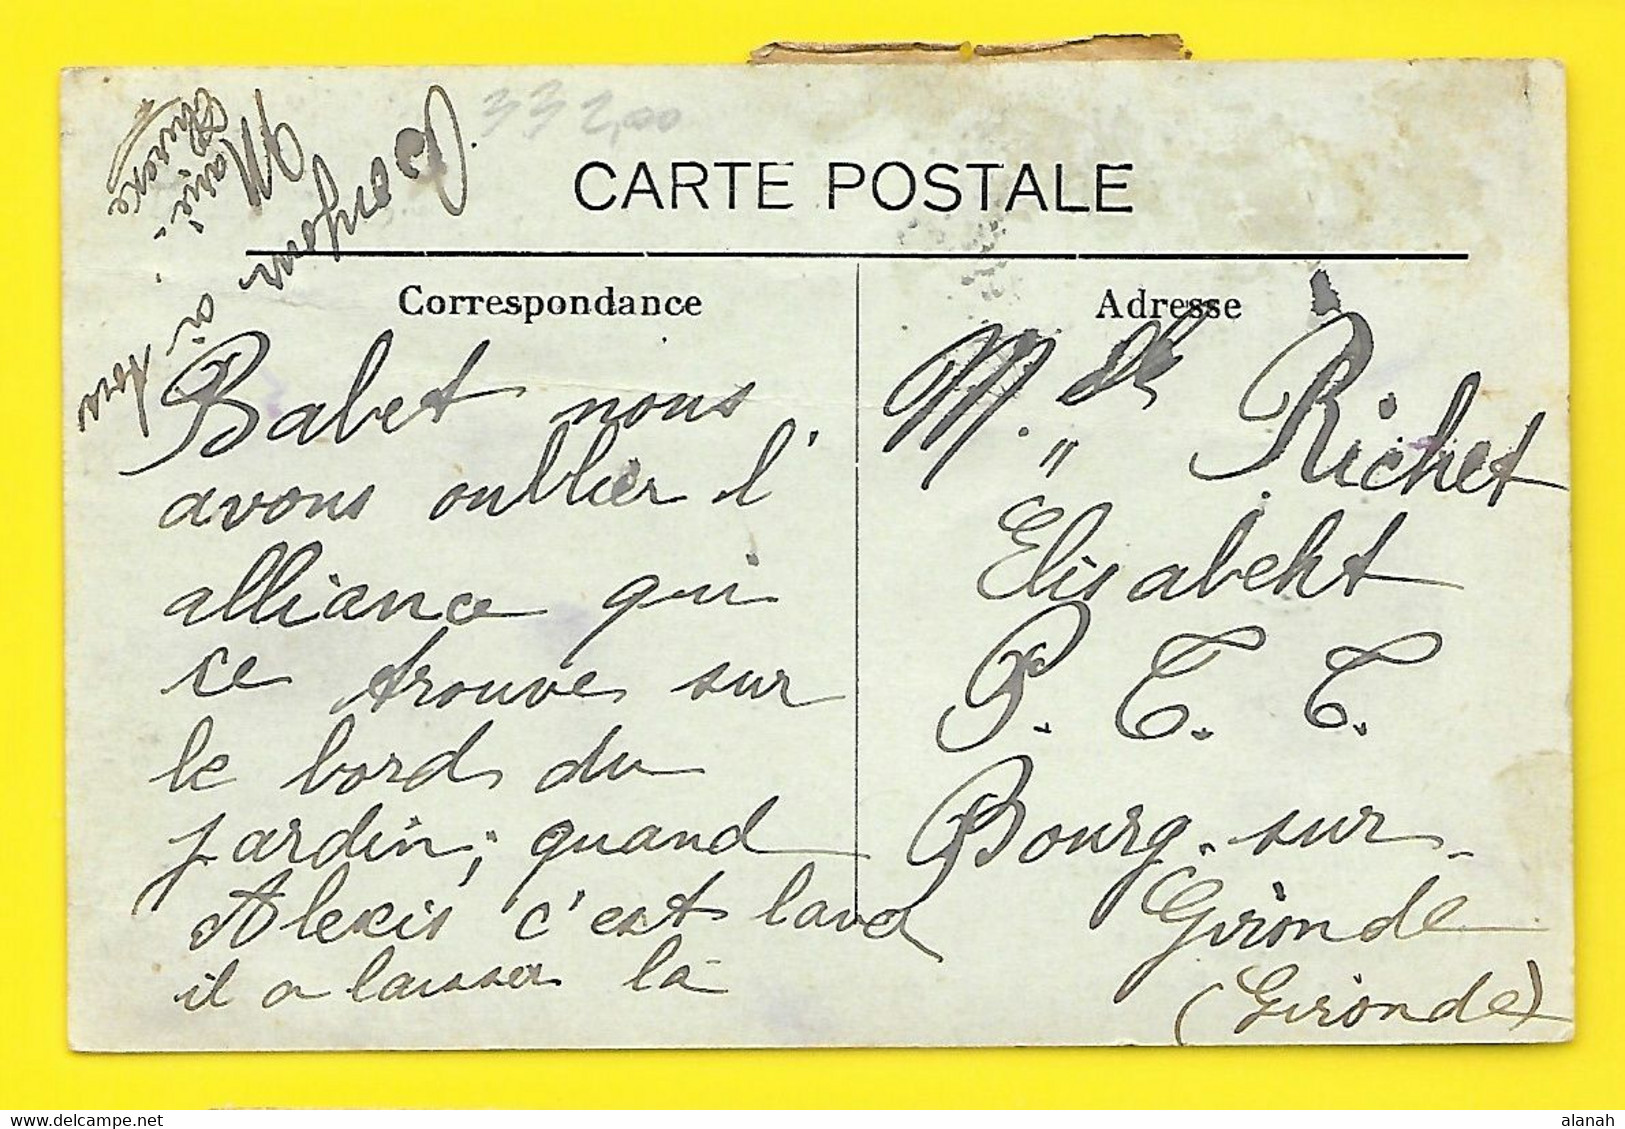 332,00
CARTE POSTALE
Correspondance
Adresse
Babet nous
avons oublier l'
alliance qui
ce trouve sur
le bord du
jardin; quand
Alexis c'est lavd
il a laisser là
Bonjour
à tous
Marie
M.elle Richet
Elisabeht
P. T. T.
Bourg-sur-
Gironde
(Gironde)
alanah